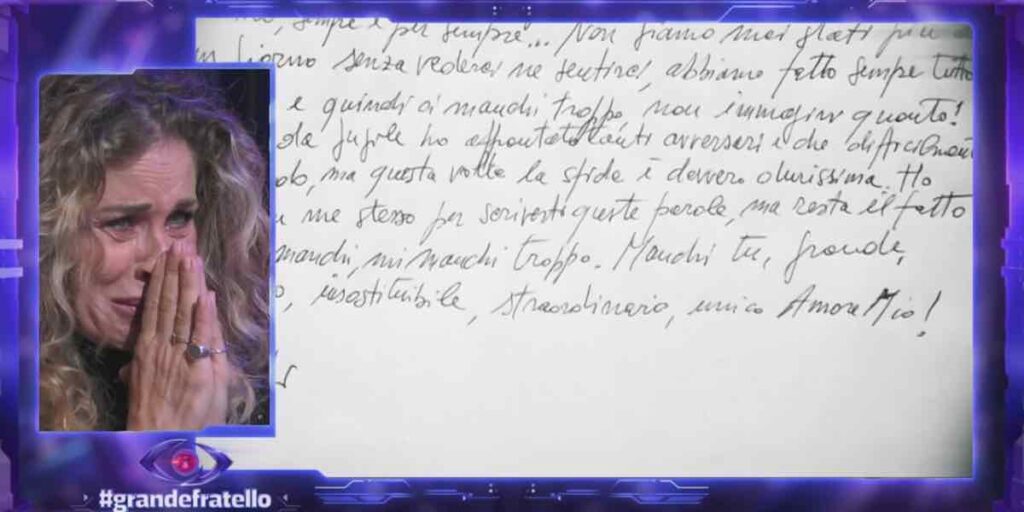 sempre e per sempre... Non siamo mai stati più
giorno senza vederci ne sentirci, abbiamo fatto sempre tutto
e quindi ci manchi troppo, non immagini quanto!
ho affrontato tanti avversari che
ma questa volta la sfida è davvero durissima. Ho
me stesso per scriverti queste parole, ma resta il fatto
manchi, mi manchi troppo. Manchi tu, grande,
insostituibile, straordinario, unico Amore Mio!
#grandefratello